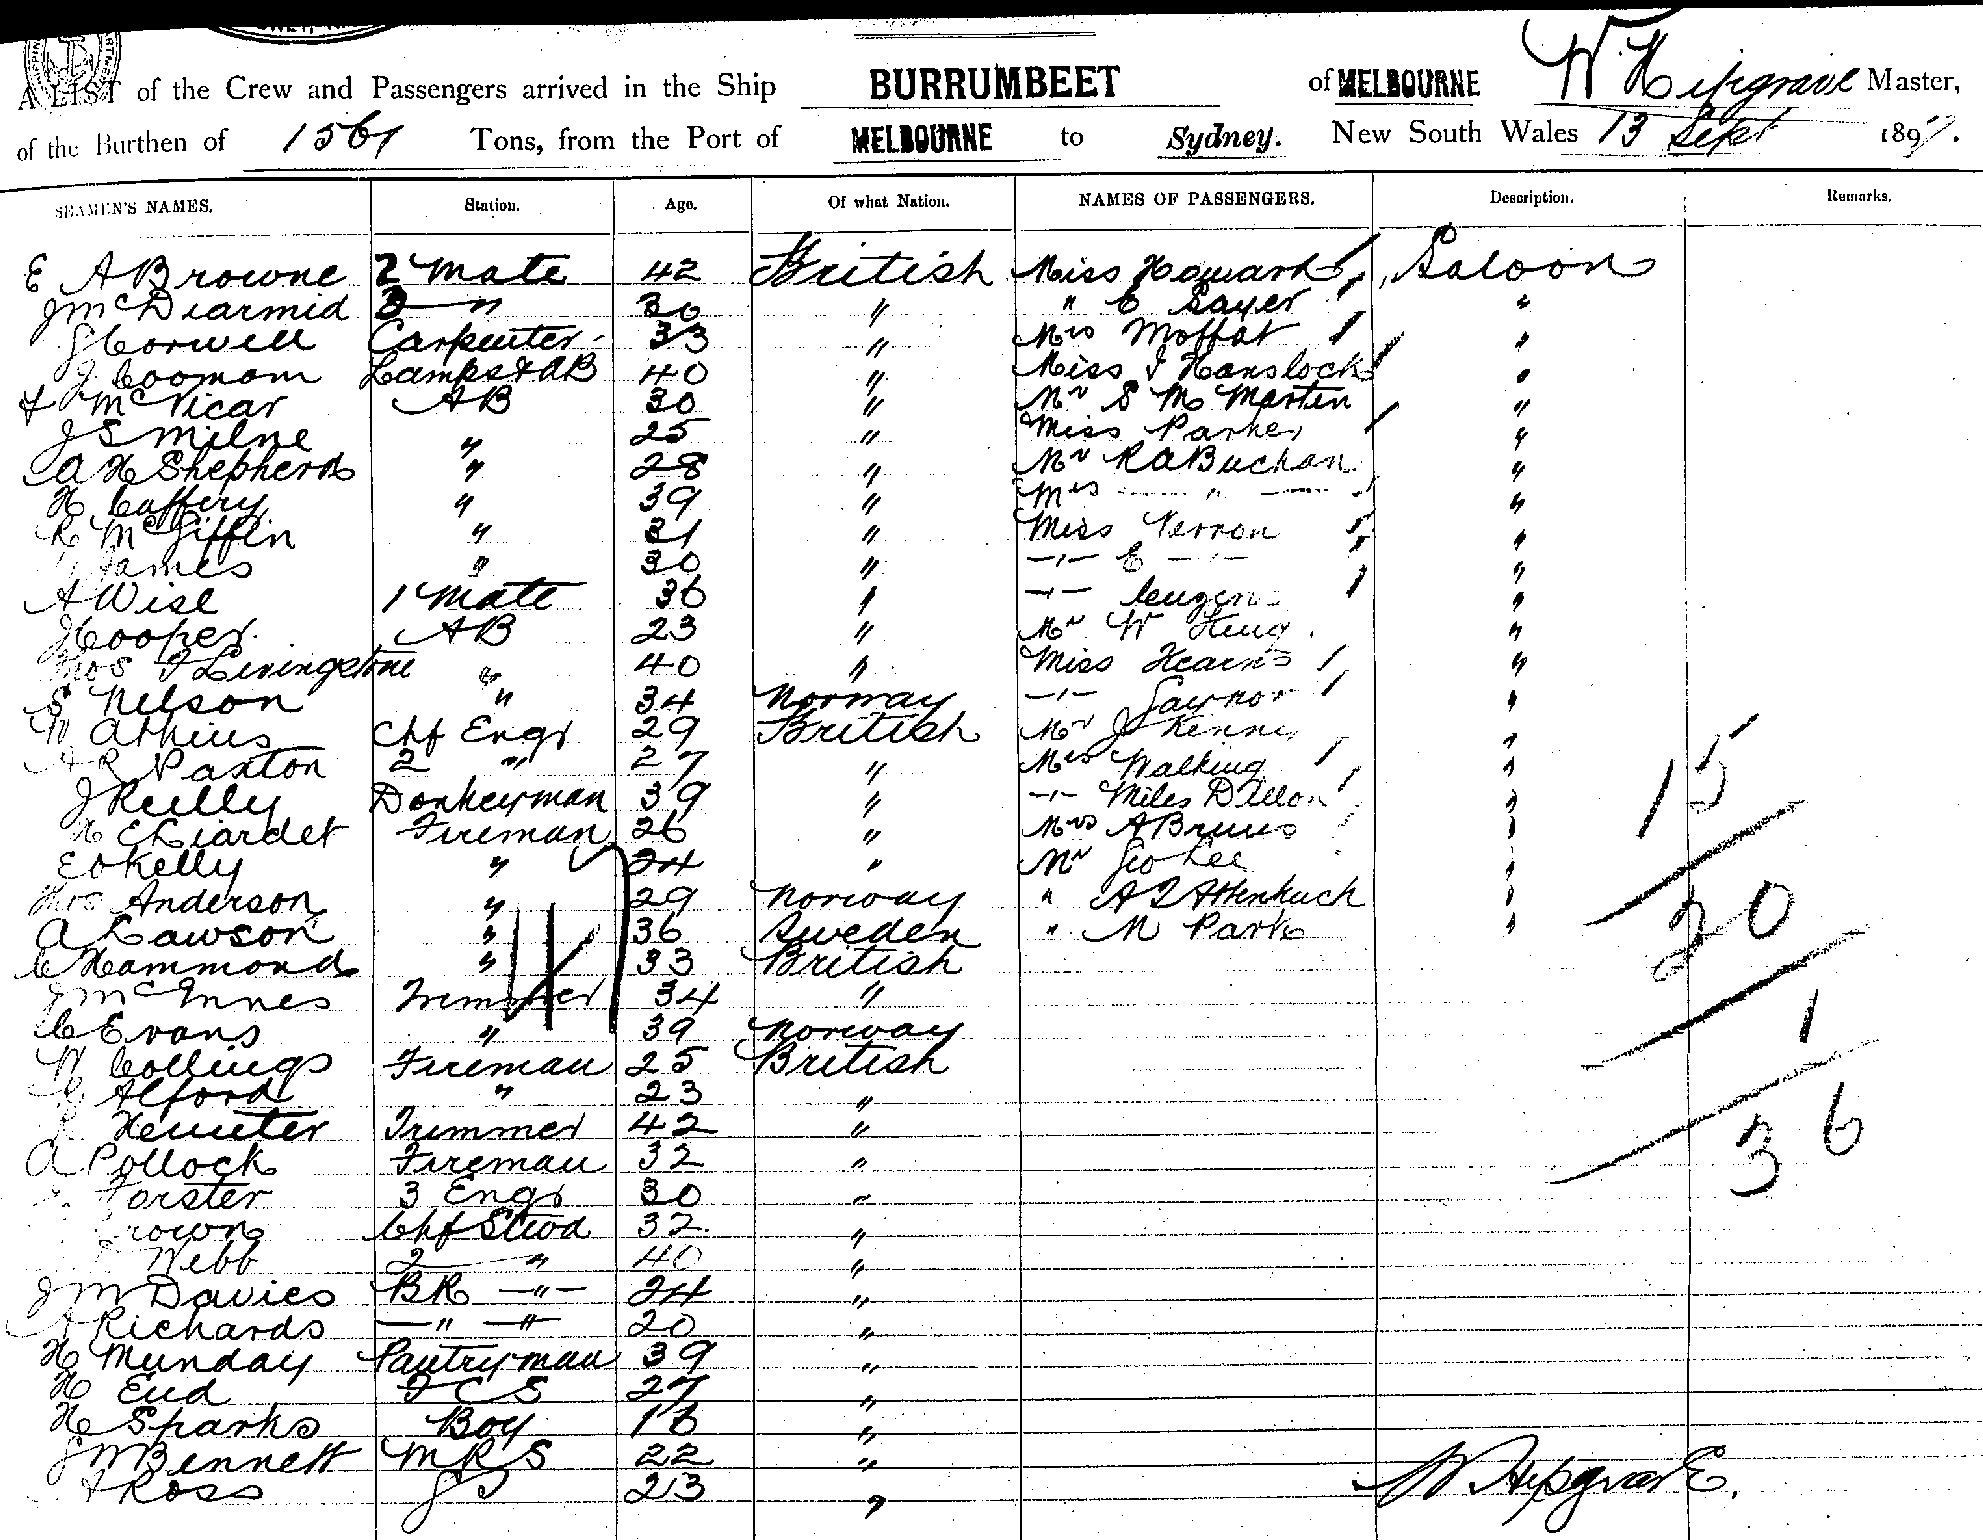 A LIST of the Crew and Passengers arrived in the Ship BURRUMBEET of MELBOURNE W Hipgrave Master,
of the Burthen of 1561 Tons, from the Port of MELBOURNE to Sydney. New South Wales 13 Sept 1897.
SEAMEN'S NAMES. Station. Age. Of what Nation. NAMES OF PASSENGERS. Description. Remarks.
E A Browne 2 Mate 42 British Miss Howard Saloon
J McDiarmid 3 " 30 " " E Sayer "
Corwell Carpenter 33 " Mrs Moffat "
J Lamps & AB 40 " Miss I Hanslock "
McVicar AB 30 " Mr S M Martin "
J S Milne " 25 " Miss Parker "
A H Shepherd " 28 " Mr R A Buchan "
H Caffery " 39 " Mrs " "
R McGiffin " 31 " Miss Verron "
James " 30 " -"- E -"- "
A Wise 1 Mate 36 " -"- "
J Cooper AB 23 " Mr W King "
Thos F Livingstone " 40 " Miss Hearns "
S Nelson " 34 Norway -"- Gaynor "
W Atkins Chf Engr 29 British Mr J "
A R Paxton 2 " 27 " Mrs Walking "
J Reilly Donkeyman 39 " -"- Miles Dillon "
H E Liardet Fireman 26 " Mrs A Bruus " 15
E O Kelly " 24 " Mr Geo Lee "
Thos Anderson " 29 Norway " A "
A Lawson " 36 Sweden " M Park " 20
C Hammond " 33 British
J McInnes Trimmer 34 "
C Evans " 39 Norway 1
W Collings Fireman 25 British
Alford " 23 "
Hunter Trimmer 42 " 36
A Pollock Fireman 32 "
Forster 3 Engr 30 "
Chf Stwd 32 "
Webb 2 " 40 "
J M Davies BR -"- 24 "
A Richards -"- -"- 20 "
H Munday Pantryman 39 "
H Eud F C S 27 "
H Sparks Boy 16 "
Bennett M R S 22 " W Hipgrave.
Ross 23 "